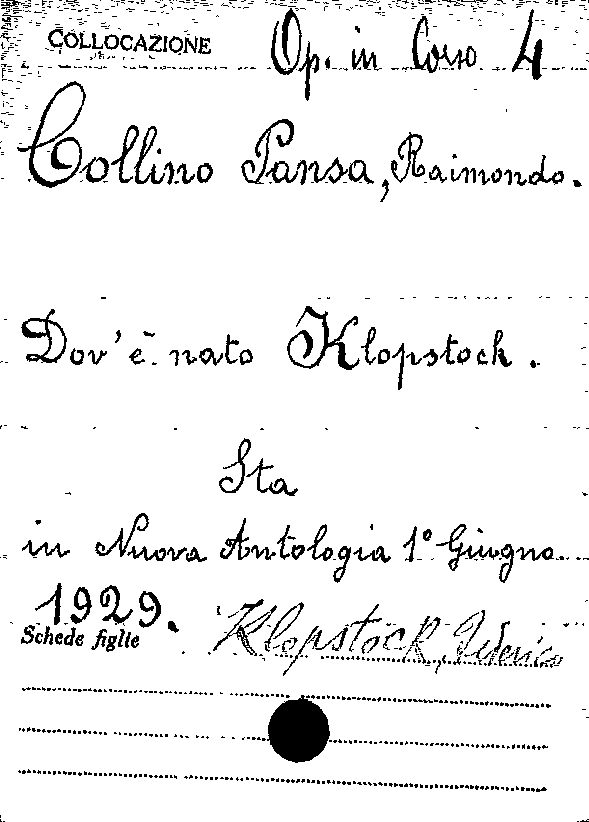 COLLOCAZIONE Op. in Corso 4
Collino Pansa, Raimondo.
Dov'è nato Klopstock.
Sta
in Nuova Antologia 1° Giugno
1929.
Schede figlie Klopstock, Federico